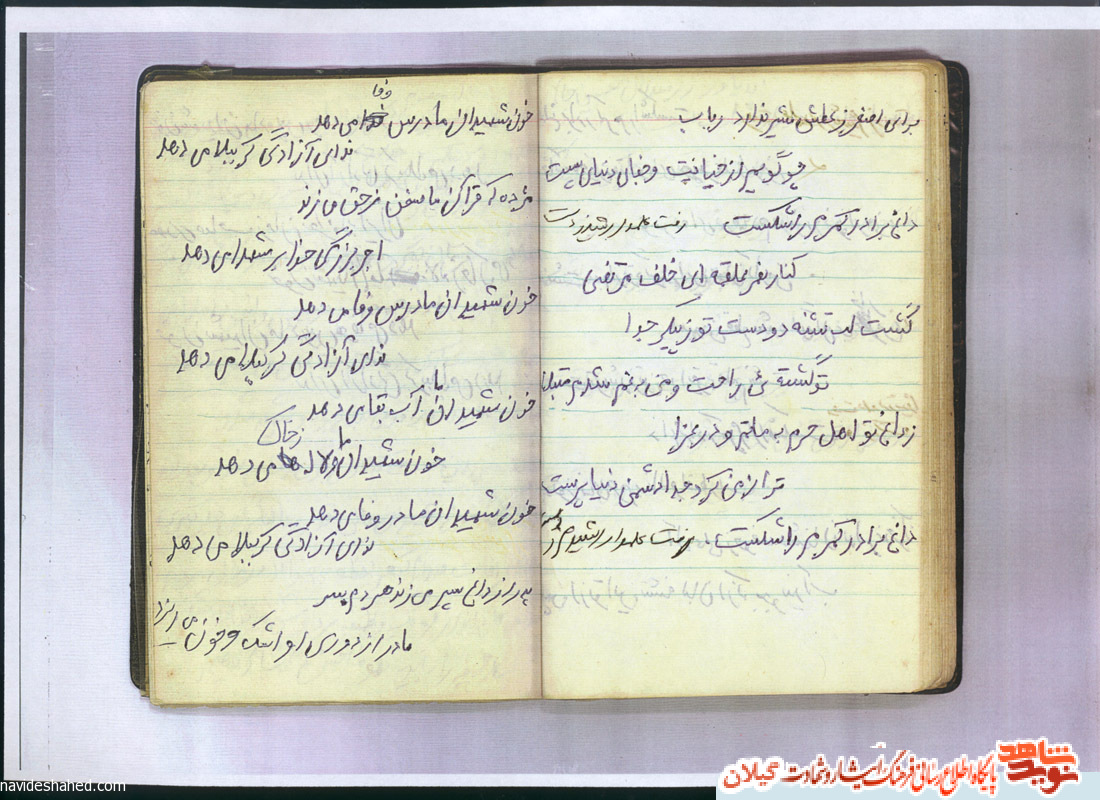 برای اصغر ز عطش شیر ندارد رباب
چو گویم از خیانت و جفای دنیای پست
داغ برادر کمرم را شکست رفت علمدار رشیدم ز دست
کنار نهر علقمه ای خلف مرتضی
گشت لب تشنه دو دست تو ز پیکر جدا
تو گشته ئی راحت و من به غم شدم مبتلا
ز داغ تو اهل حرم به ماتم و در عزا
ترا ز من کرد جدا دشمن دنیا پرست
داغ برادر کمرم را شکست رفت علمدار رشیدم ز دست
خون شهیدان ما درس وفا می دهد
ندای آزادگی کربلا می دهد
مژده که قرآن ما سخن ز حق می زند
اجر بزرگی خدا بر شهدا می دهد
خون شهیدان ما درس وفا می دهد
ندای آزادگی کربلا می دهد
خون شهیدان ما آب بقا می دهد
خون شهیدان ما لاله ز خاک می دهد
خون شهیدان ما درس وفا می دهد
ندای آزادگی کربلا می دهد
پدر از داغ پسر می زند هر دم بسر
مادر از دوری او اشک و خون می ریزد
navideshahed.com
نوید شاهد
پایگاه اطلاع رسانی فرهنگ ایثار و شهادت گیلان